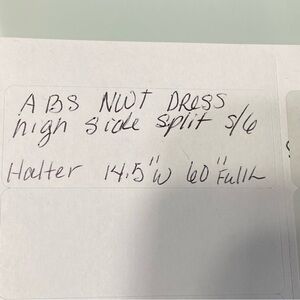 ABS NWT DRESS
high side split S/6
Halter 14.5"W 60" Full L